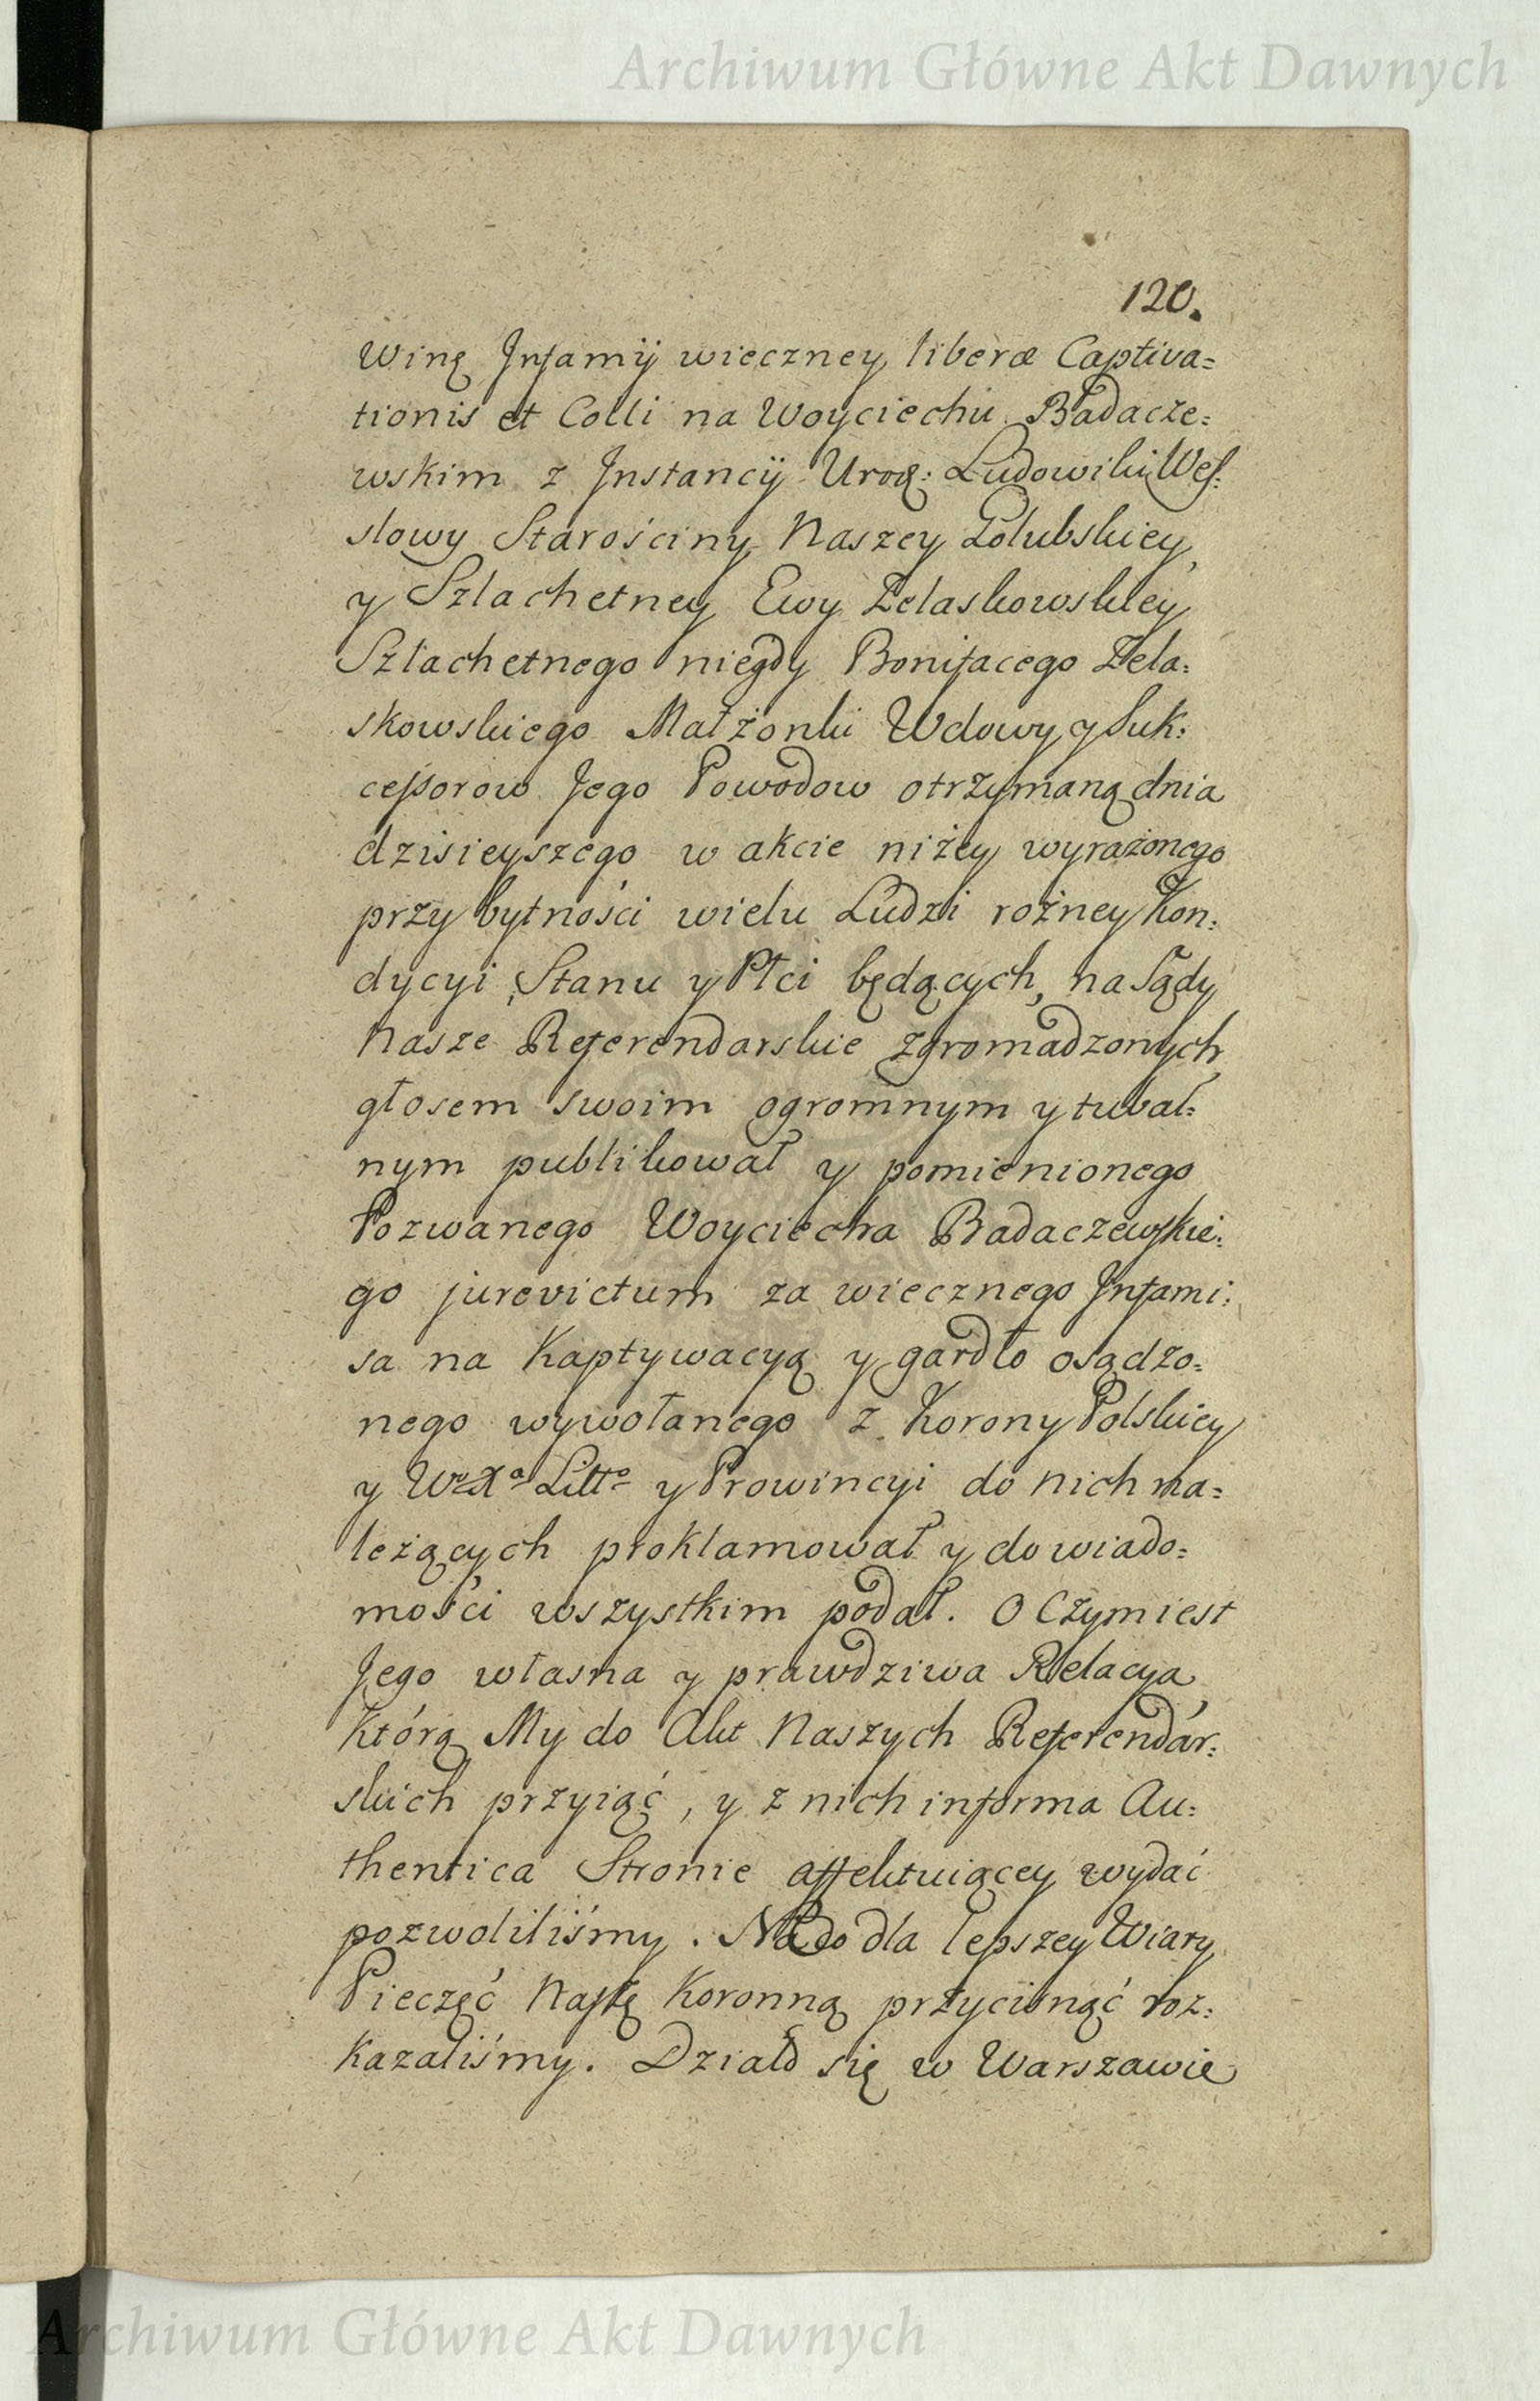 Archiwum Główne Akt Dawnych
120.
Winę Infamij wieczney liberæ Captiva=
tionis et Colli na Woyciechu Badacze=
wskim z Instancij Urodz: Ludowiki Wes=
slowy Starościny Naszey Golubskiey,
y Szlachetney Ewy Zelaskowskiey
Szlachetnego niegdy Bonifacego Zela=
skowskiego Małżonki Wdowy y Suk=
cessorow Jego Powodow otrzymaną dnia
dzisieyszego w akcie niżey wyrażonego
przy bytności wielu Ludzi rożney Kon=
dycyi, Stanu y Płci będących, na Sądy
Nasze Referendarskie zgromadzonych
głosem swoim ogromnym y tubal=
nym publikował y pomienionego
Pozwanego Woyciecha Badaczewskie=
go jurevictum za wiecznego Infami=
sa na Kaptywacyą y gardło osądzo=
nego wywołanego z Korony Polskiey
y Wo Xa Litto y Prowincyi do nich na=
leżących proklamował y do wiado=
mości wszystkim podał. O Czym iest
Jego własna y prawdziwa Relacya
którą My do Akt Naszych Referendar=
skich przyiąć, y z nich in forma Au=
thentica Stronie affektuiącey wydać
pozwoliliśmy. Na co dla lepszey Wiary
Pieczęć Naszę Koronną przycisnąć roz=
kazaliśmy. Działo się w Warszawie
Archiwum Główne Akt Dawnych